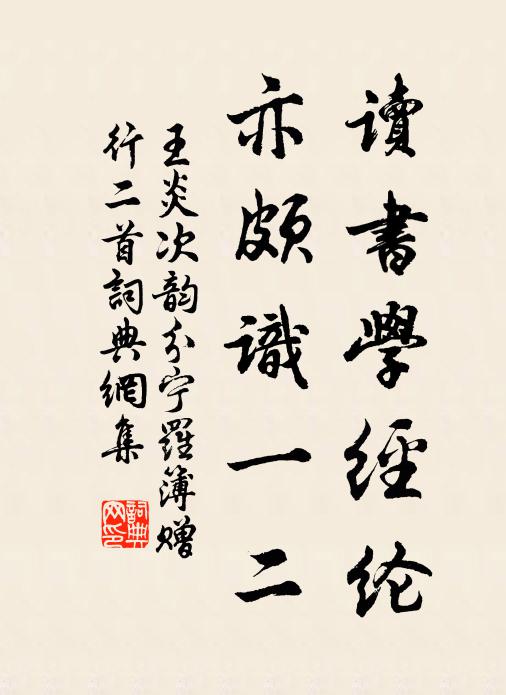 讀書學經纶
亦頗識一二
王炎次韵分宁羅簿贈
行二首詞典網集
詞典网印